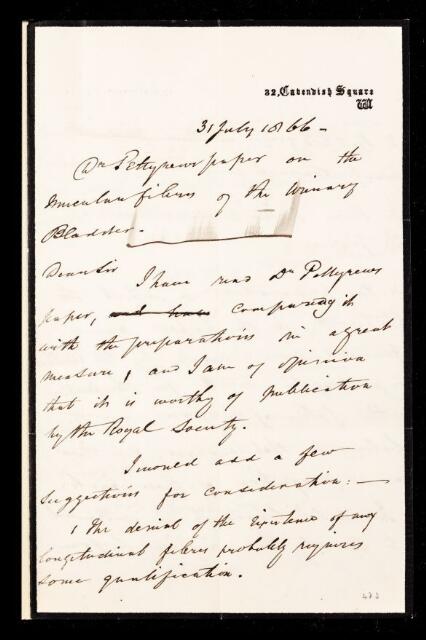 32, Cavendish Square
W
31 July 1866 -
Dr Pettigrew's paper on the
Muscular fibres of the Urinary
Bladder -
Dear Sir
I have read Dr Pettigrews
paper, and have comparing it
with the preparations in a great
measure, and I am of opinion
that it is worthy of publication
by the Royal Society.
I would add a few
suggestions for consideration: —
1 The denial of the existence of any
longitudinal fibres probably requires
some qualification.